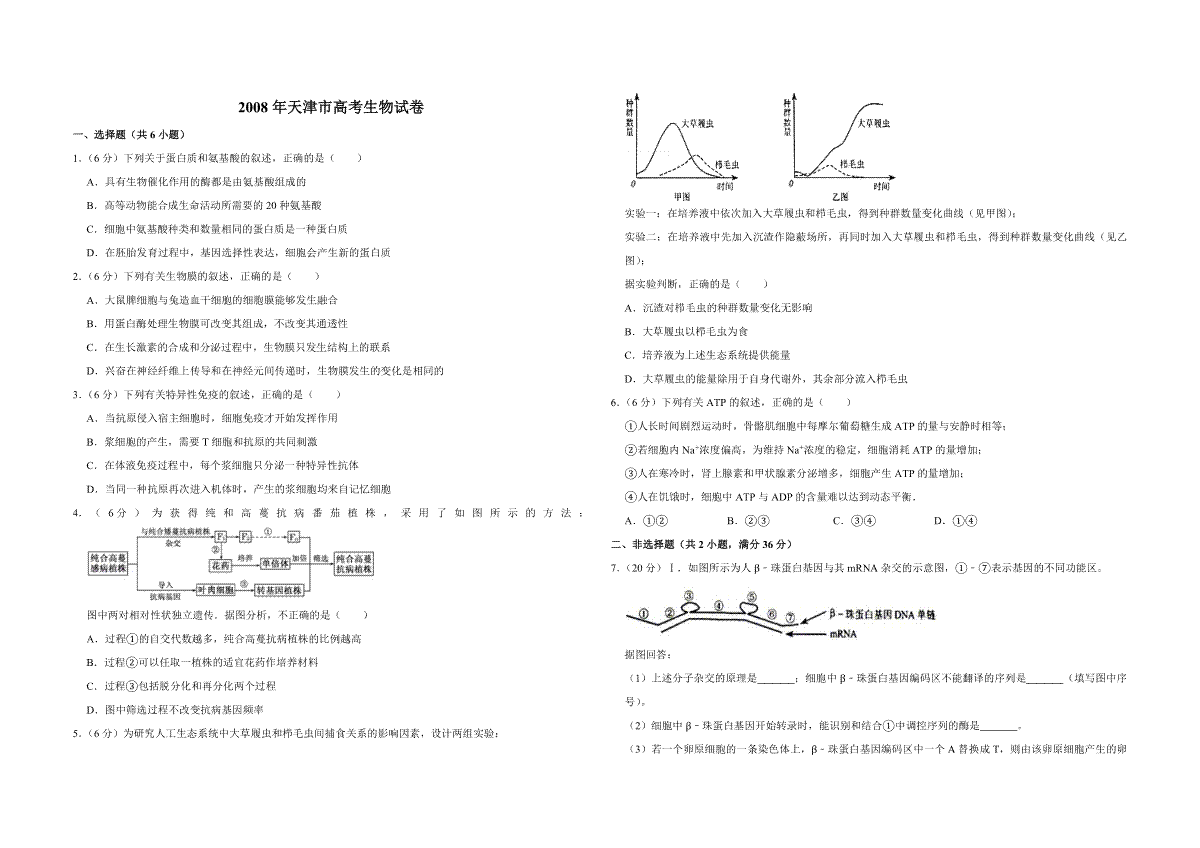 2008 年天津市高考生物试卷
一、选择题（共 6 小题）
1.（6 分）下列关于蛋白质和氨基酸的叙述，正确的是（　　）
A．具有生物催化作用的酶都是由氨基酸组成的
B．高等动物能合成生命活动所需要的 20 种氨基酸
C．细胞中氨基酸种类和数量相同的蛋白质是一种蛋白质
D．在胚胎发育过程中，基因选择性表达，细胞会产生新的蛋白质
2.（6 分）下列有关生物膜的叙述，正确的是（　　）
A．大鼠脾细胞与兔造血干细胞的细胞膜能够发生融合
B．用蛋白酶处理生物膜可改变其组成，不改变其通透性
C．在生长激素的合成和分泌过程中，生物膜只发生结构上的联系
D．兴奋在神经纤维上传导和在神经元间传递时，生物膜发生的变化是相同的
3.（6 分）下列有关特异性免疫的叙述，正确的是（　　）
A．当抗原侵入宿主细胞时，细胞免疫才开始发挥作用
B．浆细胞的产生，需要 T 细胞和抗原的共同刺激
C．在体液免疫过程中，每个浆细胞只分泌一种特异性抗体
D．当同一种抗原再次进入机体时，产生的浆细胞均来自记忆细胞
4.（6 分）为获得纯和高蔓抗病番茄植株，采用了如图所示的方法；
与纯合矮蔓抗病植株 杂交 F₁ F₂ ① Fₙ
②
纯合高蔓感病植株 花药 培养 单倍体 加倍 筛选 纯合高蔓抗病植株
导入 抗病基因 叶肉细胞 ③ 转基因植株
图中两对相对性状独立遗传．据图分析，不正确的是（　　）
A．过程①的自交代数越多，纯合高蔓抗病植株的比例越高
B．过程②可以任取一植株的适宜花药作培养材料
C．过程③包括脱分化和再分化两个过程
D．图中筛选过程不改变抗病基因频率
5.（6 分）为研究人工生态系统中大草履虫和栉毛虫间捕食关系的影响因素，设计两组实验：
种群数量 大草履虫 栉毛虫 0 时间 甲图
种群数量 大草履虫 栉毛虫 0 时间 乙图
实验一：在培养液中依次加入大草履虫和栉毛虫，得到种群数量变化曲线（见甲图）；
实验二：在培养液中先加入沉渣作隐蔽场所，再同时加入大草履虫和栉毛虫，得到种群数量变化曲线（见乙
图）；
据实验判断，正确的是（　　）
A．沉渣对栉毛虫的种群数量变化无影响
B．大草履虫以栉毛虫为食
C．培养液为上述生态系统提供能量
D．大草履虫的能量除用于自身代谢外，其余部分流入栉毛虫
6.（6 分）下列有关 ATP 的叙述，正确的是（　　）
①人长时间剧烈运动时，骨骼肌细胞中每摩尔葡萄糖生成 ATP 的量与安静时相等；
②若细胞内 Na⁺浓度偏高，为维持 Na⁺浓度的稳定，细胞消耗 ATP 的量增加；
③人在寒冷时，肾上腺素和甲状腺素分泌增多，细胞产生 ATP 的量增加；
④人在饥饿时，细胞中 ATP 与 ADP 的含量难以达到动态平衡．
A．①② B．②③ C．③④ D．①④
二、非选择题（共 2 小题，满分 36 分）
7.（20 分）Ⅰ．如图所示为人 β﹣珠蛋白基因与其 mRNA 杂交的示意图，①﹣⑦表示基因的不同功能区。
① ② ③ ④ ⑤ ⑥ ⑦ β﹣珠蛋白基因 DNA 单链
mRNA
据图回答：
（1）上述分子杂交的原理是_______；细胞中 β﹣珠蛋白基因编码区不能翻译的序列是_______（填写图中序
号）。
（2）细胞中 β﹣珠蛋白基因开始转录时，能识别和结合①中调控序列的酶是_______。
（3）若一个卵原细胞的一条染色体上，β﹣珠蛋白基因编码区中一个 A 替换成 T，则由该卵原细胞产生的卵